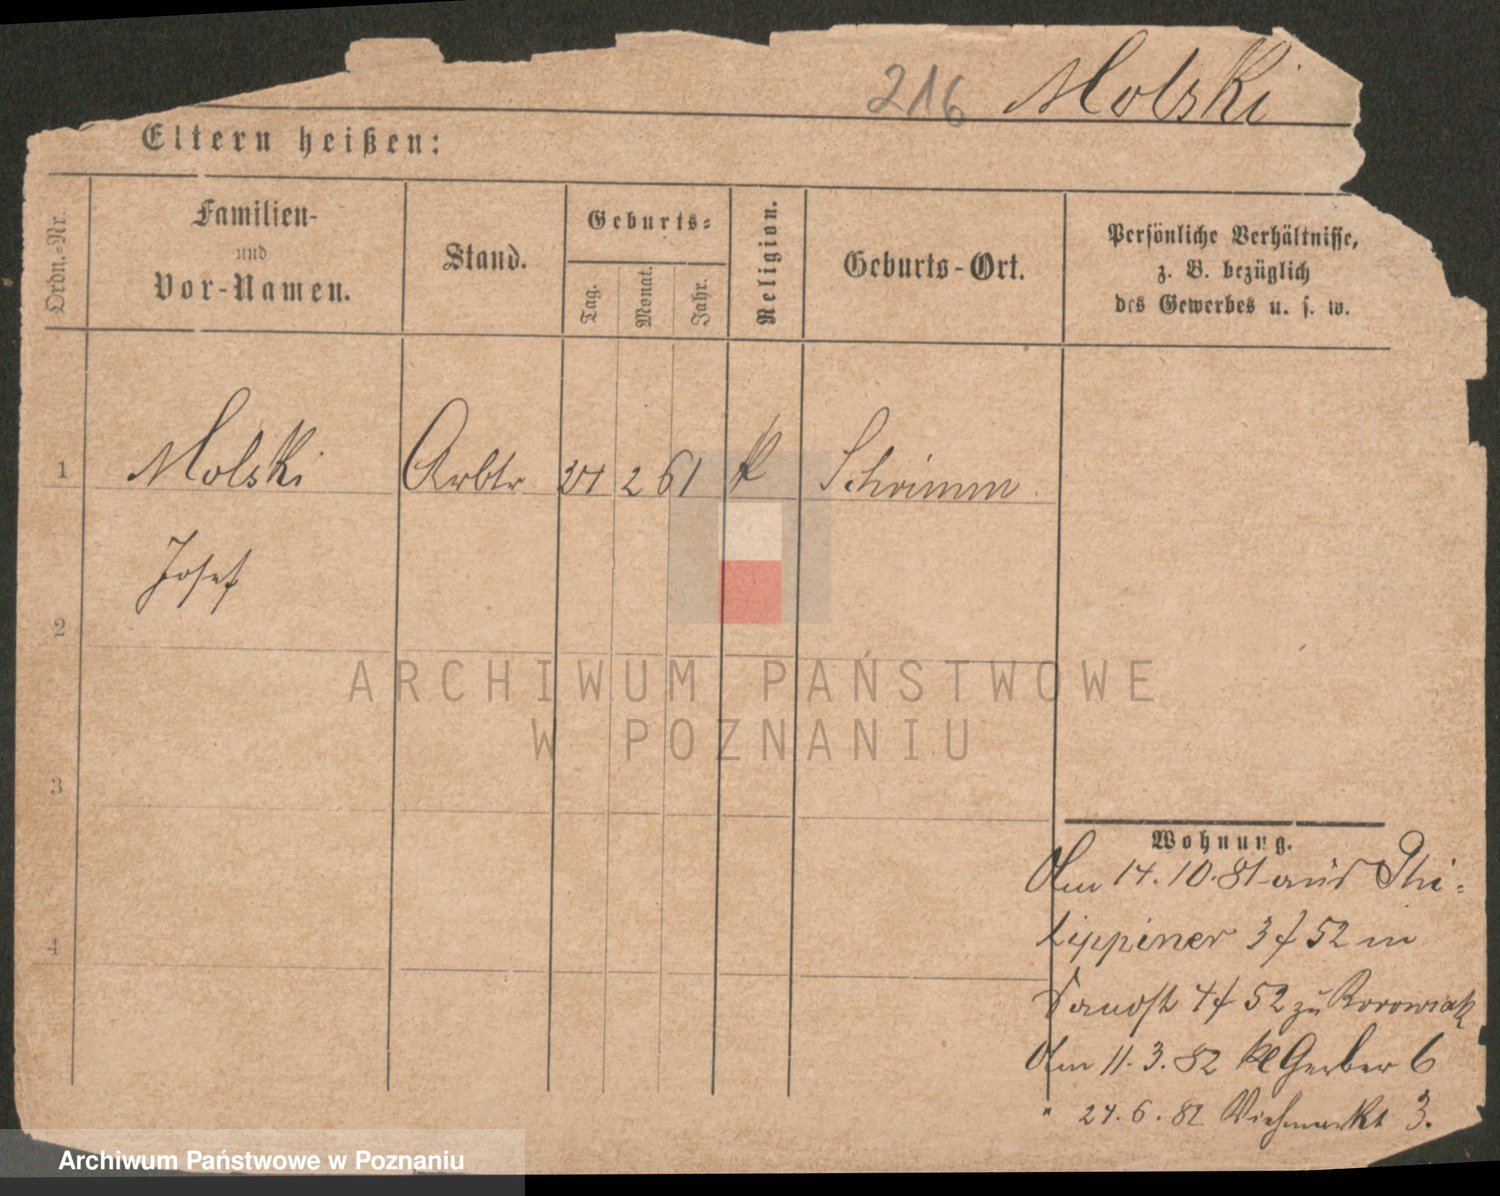 216 Molski
Eltern heißen:
Ordn.-Nr.
Familien-
und
Vor-Namen.
Stand.
Geburts-
Tag.
Monat.
Jahr.
Religion.
Geburts-Ort.
Persönliche Verhältnisse,
z. B. bezüglich
des Gewerbes u. s. w.
1 Molski Arbtr 2 61 k Schrimm
Josef
2
3
4
Wohnung.
Am 14.10.81 aus Phi-
lippiner 3 / 52 in
4 / 52 zu Borowiak
Am 11.3.82 kl Gerber 6
" 24.6.82 Viehmarkt 3.
ARCHIWUM PAŃSTWOWE
W POZNANIU
Archiwum Państwowe w Poznaniu